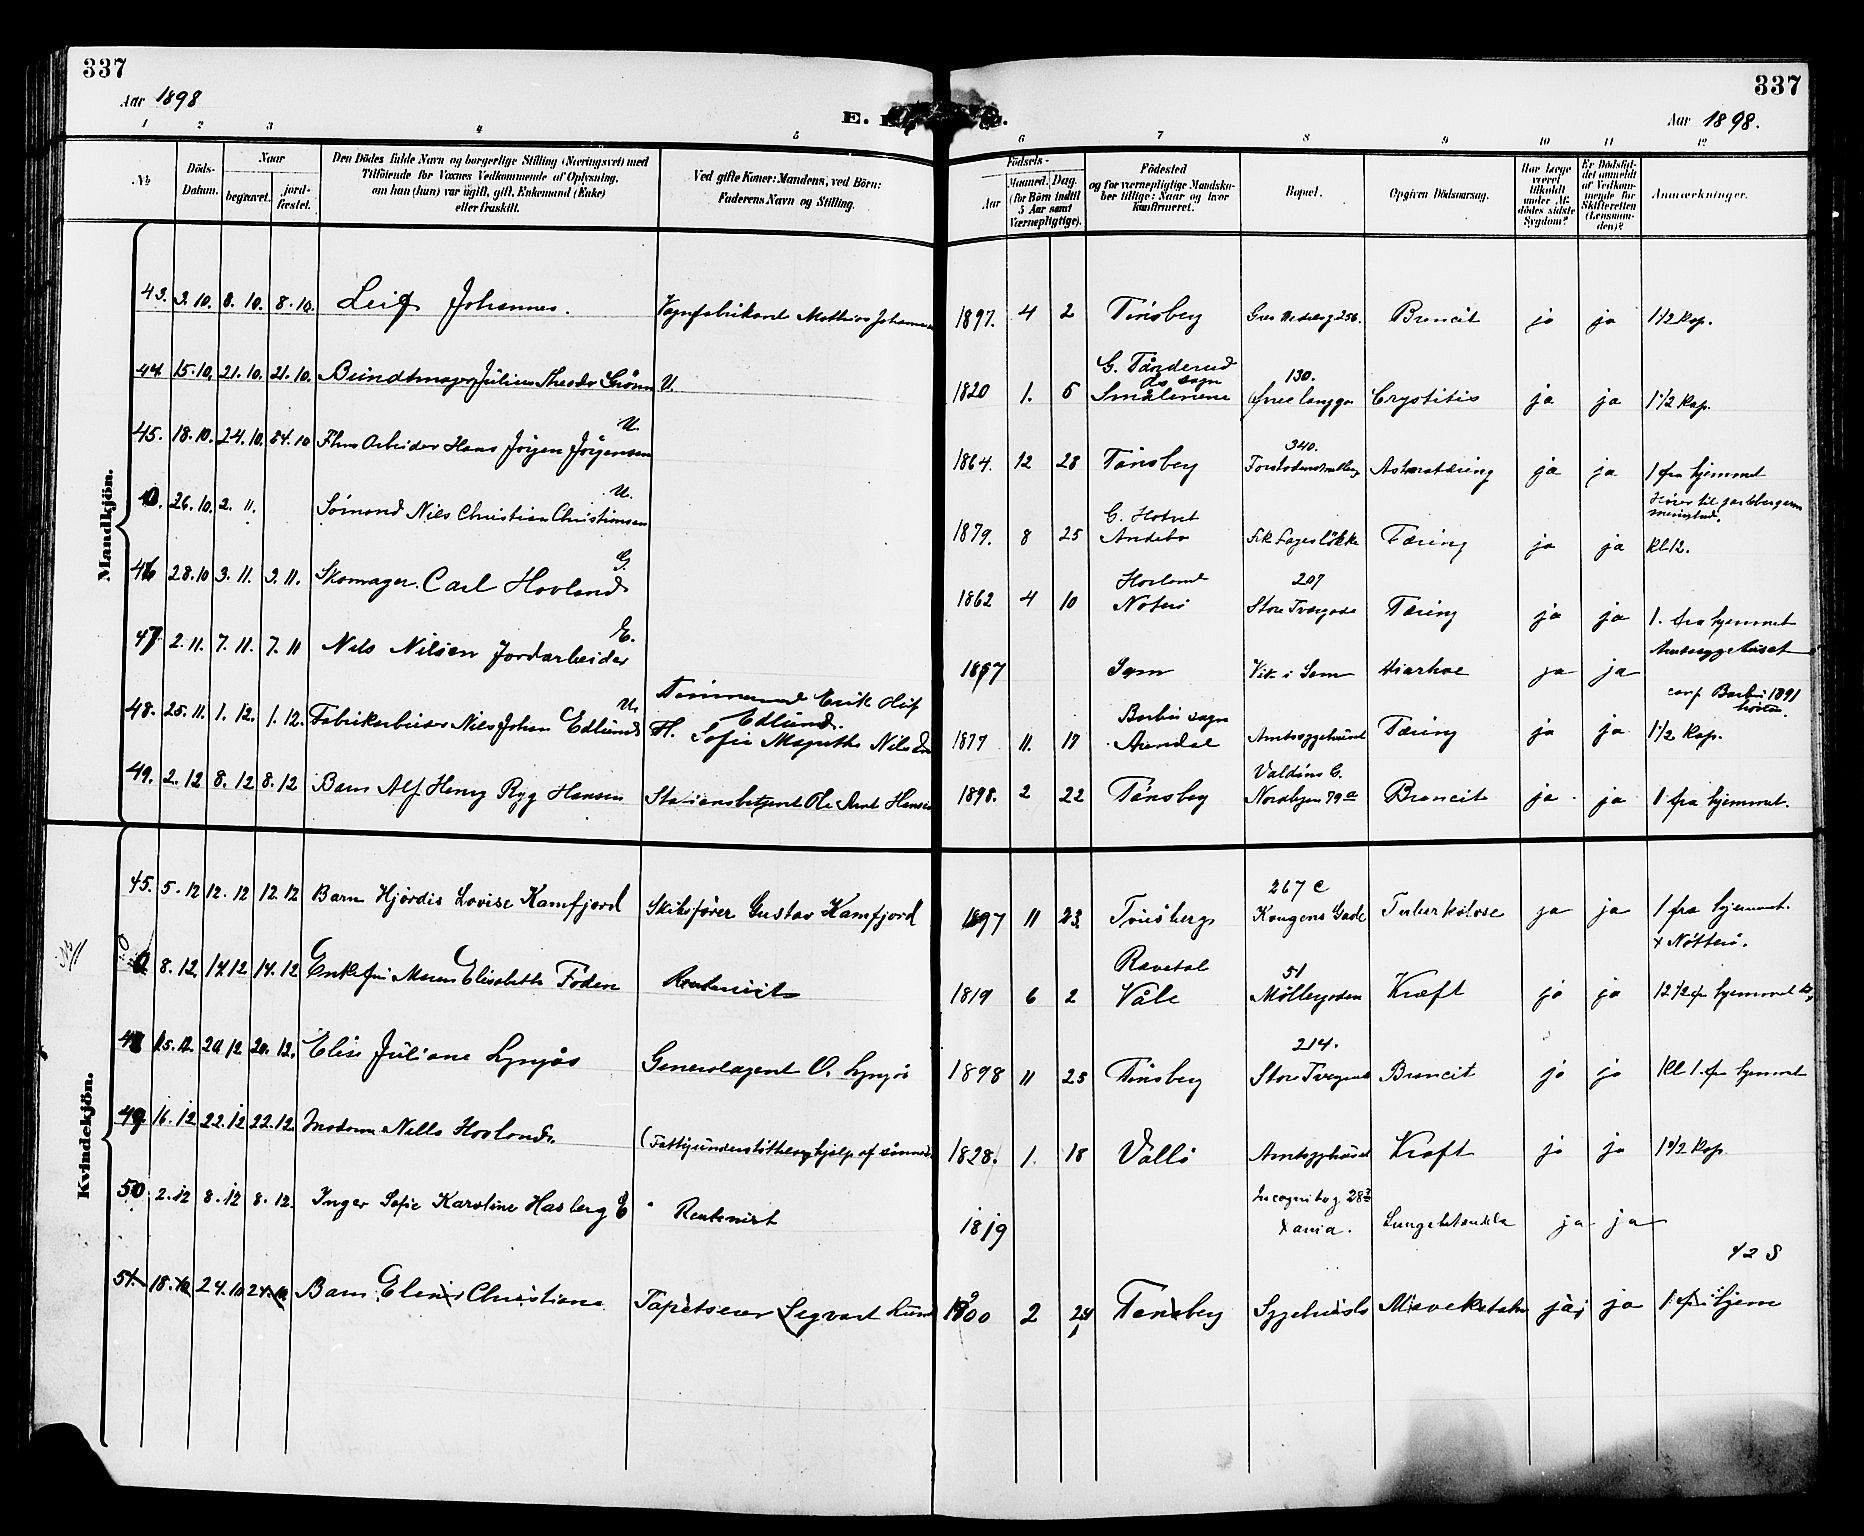 337
337
Aar 1898
Aar 1898.
E.
1 2 3 4 5 6 7 8 9 10 11 12
No
Döds-Datum.
Naar
begravet.
jord-fæstet.
Den Dödes fulde Navn og borgerlige Stilling (Næringsvei) med
Tilföiende for Voxnes Vedkommende af Oplysning,
om han (hun) var ugift, gift, Enkemand (Enke)
eller fraskilt.
Ved gifte Koner: Mandens, ved Börn:
Faderens Navn og Stilling.
Födsels-
Aar
Maaned. Dag.
(for Börn indtil
5 Aar samt
Værnepligtige).
Födested
og for værnepligtige Mandska-
ber tillige: Naar og hvor
konfirmeret.
Bopæl.
Opgiven Dödsaarsag.
Har Læge
været
tilkaldt
under Af-
dödes sidste
Sygdom?
Er Dödsfal-
det anmeldt
af Vedkom-
mende for
Skifteretten
(Lensman-
den)?
Anmærkninger.
Mandkjön.
43. 3.10. 8.10. 8.10. Leif Johannes. Vognfabrikant Mathias 1897. 4 2 Tönsberg 256. Broncit ja ja 1 1/2 Kap.
44 15.10. 21.10. 21.10. Bundtmager Julius Theodor Grönn U. 1820 1. 6 G. Tånderud ds sogn Smålenene 130. Övre langga Crystitis ja ja 1 1/2 Kap.
45. 18.10. 24.10. 24.10 Arbeider Hans Jörgen Jörgensen U. 1864. 12 28 Tönsberg 340. ja ja 1 fra hjemmet
0. 26.10. 2.11. Sömand Nils Christian Christiansen U. 1879. 8 25 G. Andebo Tæring ja ja Kl 12.
46 28.10 3.11. 3.11. Skomager Carl Hovland G. 1862 4 10 Hovland Nöterö 207 Store Tværgade Tæring ja ja 1. fra hjemmet
47 2.11. 7.11. 7.11 Nils Nilsen Jordarbeider E. 1897 Sem Vik i Sem Diarhoe ja ja Amtssygehuset
48. 25.11. 1.12. 1.12. Fabrikarbeider Nils Johan Edlund U. Tömmermand Erik Edlund. H. Sofie Nilsdtr 1877 11. 17 Barbu sogn Arendal Amtssygehuset Tæring ja ja conf Barbu 1891 1 1/2 Kap.
49. 2.12 8.12 8.12 Barn Alf Henry Ryg Hansen Stationsbetjent Ole Hansen 1898. 2 22 Tönsberg Nordbyen 79a Broncit ja ja 1 fra hjemmet.
Kvindekjön.
45. 5.12 12.12 12.12 Barn Hjördis Lovise Kamfjord Skibsförer Gustav Kamfjord 1897 11 23 Tönsberg 267 c Kongens Gade Tuberkulose ja ja 1 fra hjemmet. x Nötterö.
8.12 14.12 14.12 Enkefru Maren Elisabeth Foden Rentenist 1819 6 2 Ravetal Våle 51 Möllegaden Kræft ja ja 12 1/2 fr hjemmet
15.12. 20.12 20.12. Elise Juliane Lynjös Generalagent O. Lynjös 1898 11 25 Tönsberg 214. Store Tværgade Broncit ja ja Kl 1. fr hjemmet
49 16.12 22.12 22.12 Madam Hovland 1828. 1. 18 Vallö Amtssygehuset Kræft ja ja 1 1/2 Kap.
50 2.12 8.12 8.12. Inger Sofie Karoline Hasberg E Rentenist 1819 Incognitog 28 Xania. Lungebetændelse ja ja
42 S
51. 18.10 24.10 24.10 Barn Christiane Tapetserer Segvart Lund 1900 2 24 Tønsberg ja ja 1 hjem